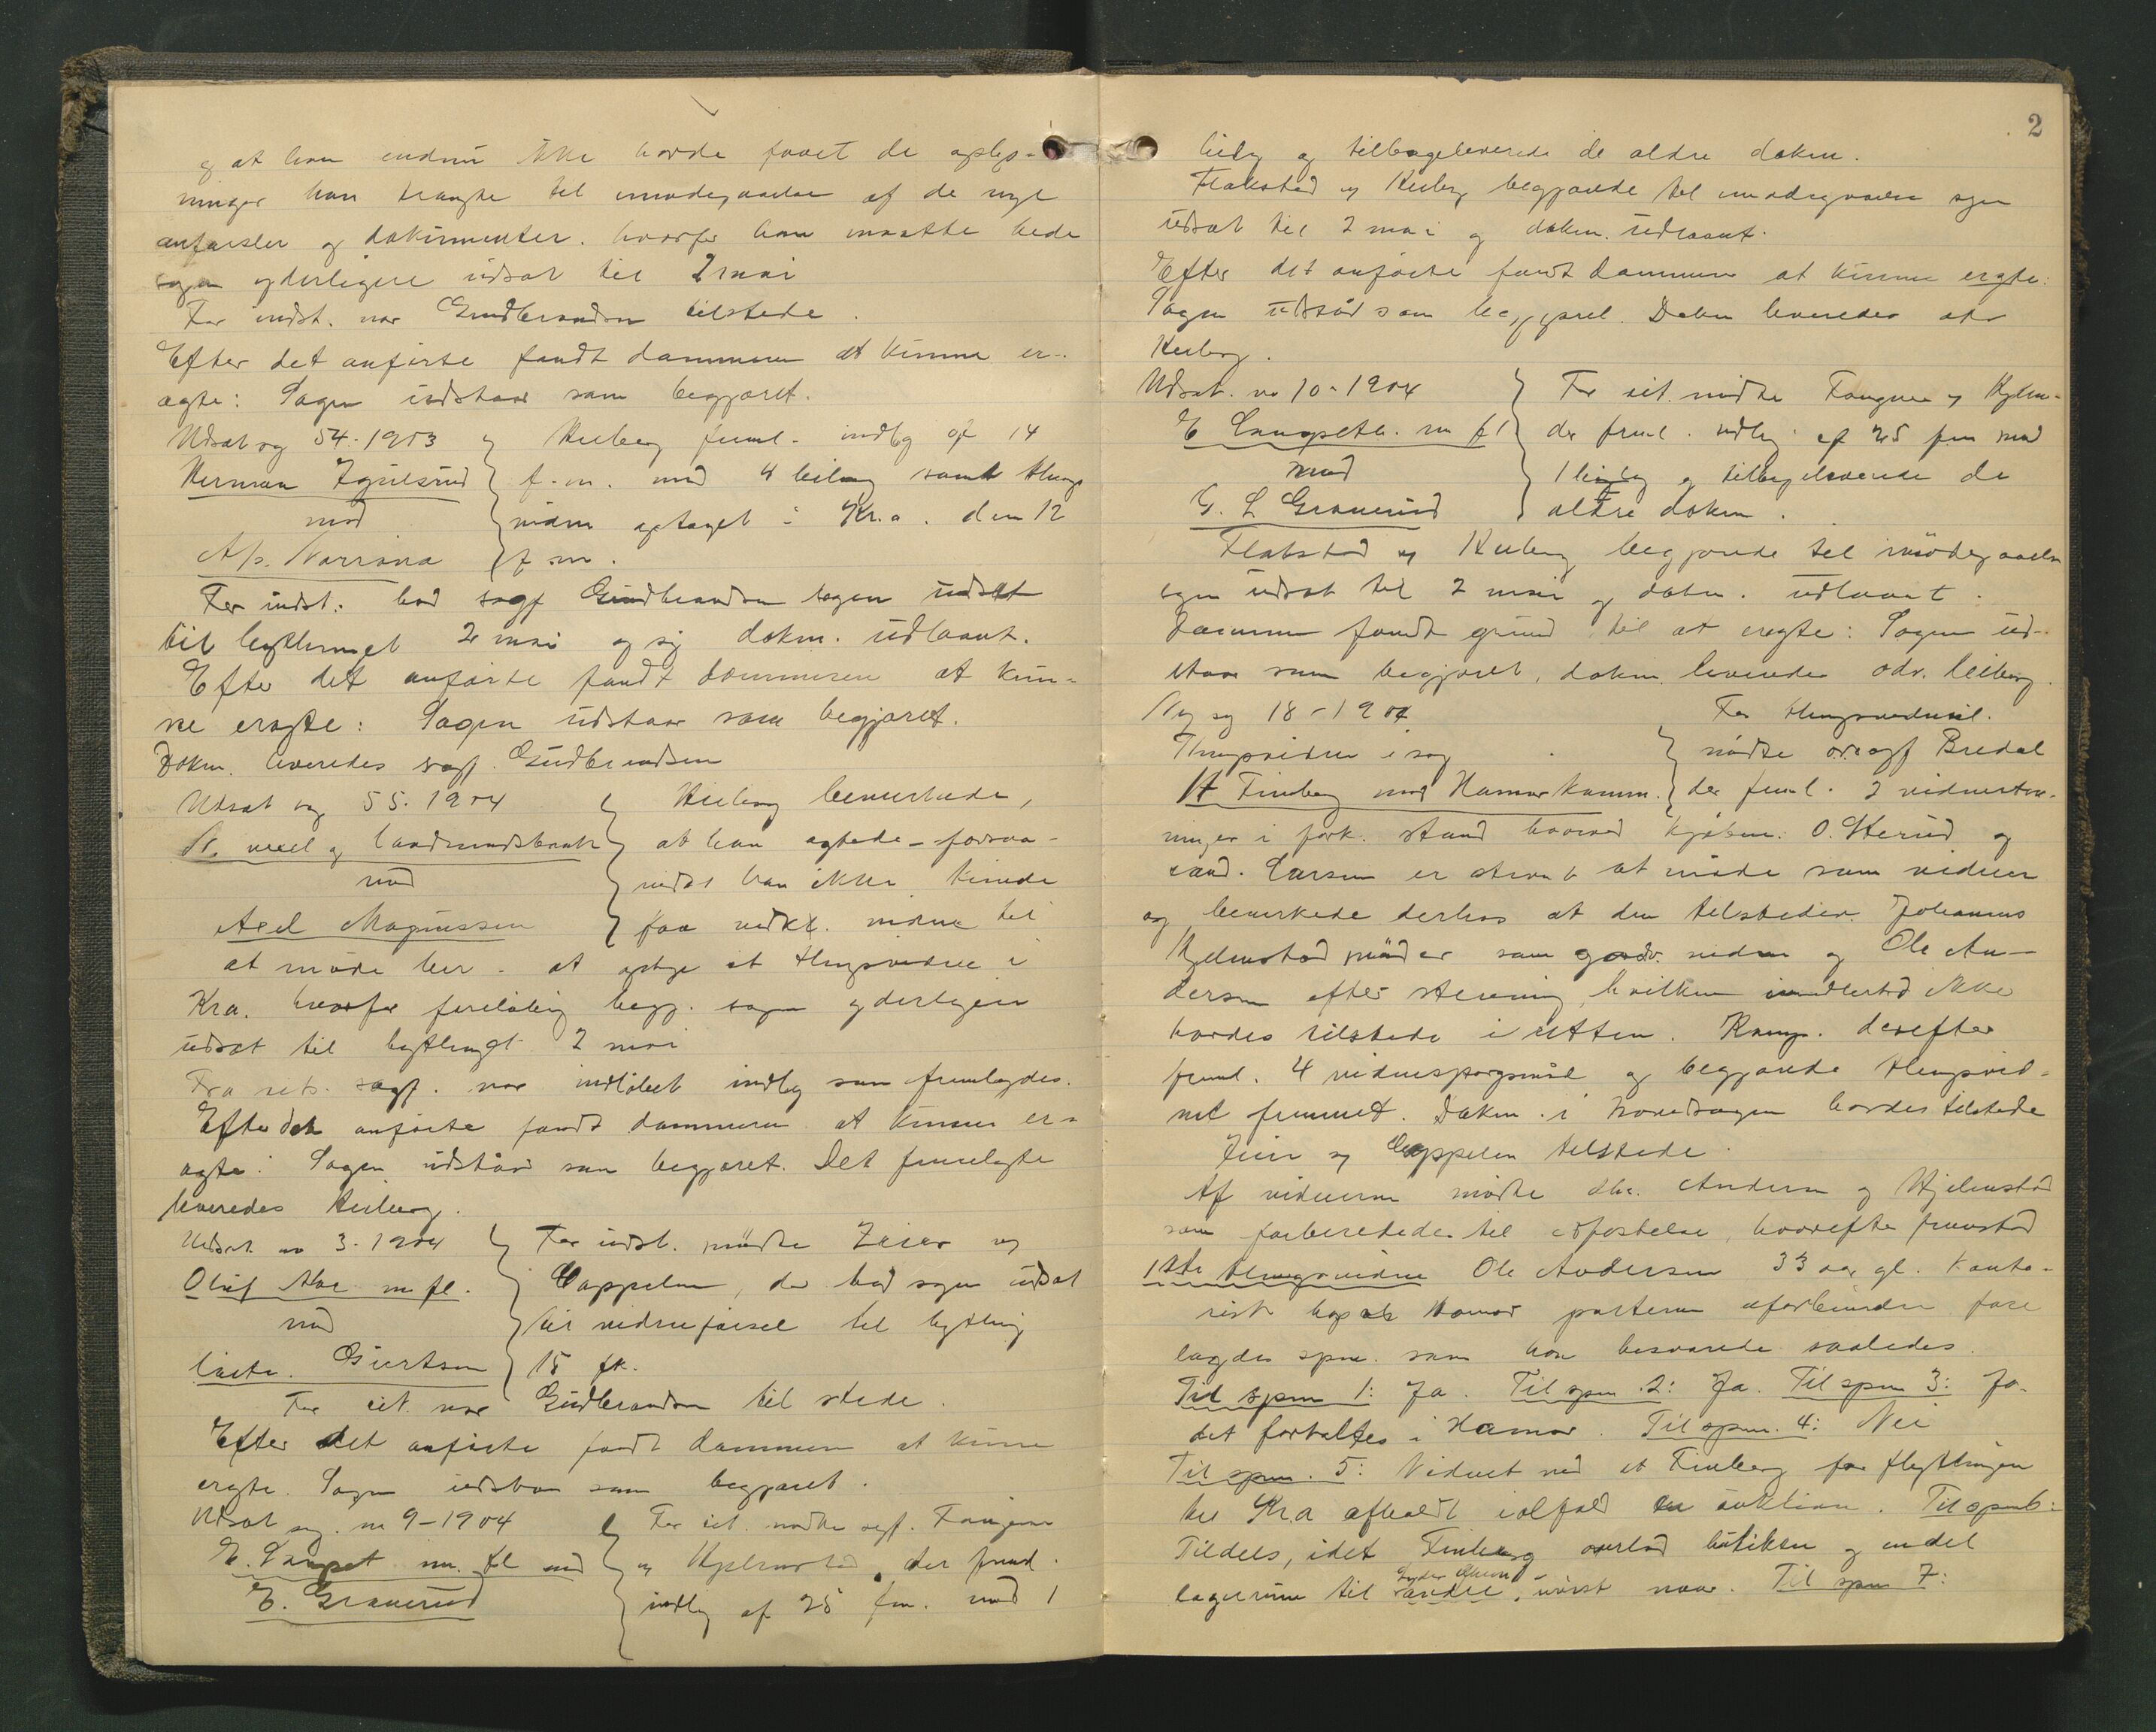 og at han endnu ikke havde faaet de oplys-
ninger han trængte til imødegaaelse af de nye
anførsler og dokumenter. hvorfor han maatte bede
sagen yderligere udsat til 2 mai
For indst. var Gudbrandsen tilstede.
Efter det anførte fandt dommeren at kunne er-
agte: Sagen udstaar som begjæret.
Udsat sag 54-1903
Herman
mod
A/s. Norrøna
Heiberg freml. indlæg af 14
f.m. med 4 bilag samt things
vidne optaget i Kr.a. den 12
f.m.
For indst. bad sagf Gudbrandsen sagen udsat
til bythinget 2 mai og sig dokm. udlaant.
Efter det anførte fandt dommeren at kun-
ne eragte: Sagen udstaar som begjæret.
Dokm. leveredes sagf. Gudbrandsen
Udsat sag 55-1904
N. vexel og landmandsbank
mod
Axel Magnussen
Heiberg bemærkede,
at han agtede - forsaa-
vidt han ikke kunde
faa vedk. vidne til
at møde her - at optage et thingsvidne i
Kra. hvorfor foreløbig begj. sagen yderligere
udsat til bythinget 2 mai
Fra sagf. var indløbet indlæg som fremlagdes.
Efter det anførte fandt dommeren at kunne er-
agte: Sagen udstaar som begjæret. Det fremlagte
leveredes Heiberg.
Udsat sag 3-1904
Oluf m fl.
mod
For indst. mødte og
Cappelen, der bad sagen udsat
til vidneførsel til bything
15 
For cit. var Gudbrandsen til stede.
Efter det anførte fandt dommeren at kunne
eragte. Sagen udstaar som begjæret.
Udsat sag nr 9-1904
m. fl mod
E. Graverud
For cit. mødte sagf.
og Hjelmstad, der freml.
indlæg af 25 f.m. med 1
2
bilag og tilbageleverede de ældre dokm.
Flakstad og Heiberg begjærede til imødegaaelse sagen
udsat til 2 mai og dokm. udlaant.
Efter det anførte fandt dommeren at kunne eragte:
Sagen udstaar som begjæret. Dokm leveredes adv
Heiberg.
Udsat. no 10-1904
E m fl
mod
G. L Graverud
For cit. mødte og Hjelm-
der freml. indlæg af 25 f.m med
1 bilag og tilbageleverede de
ældre dokm.
Flakstad og Heiberg begjærede til imødegaaelse
sagen udsat til 2 mai og dokm. udlaant.
Dommeren fandt grund til at eragte: Sagen ud-
staar som begjæret, dokm. leveredes adv. Heiberg.
Ny sag 18-1904
Thingsvidne i sag
H Finberg mod Hamar komm.
For thingsvidnet.
mødte orsagf Bredal
der freml. 2 vidnestæv-
ninger i fork. stand hvorved kjøbm. O. Sterud og
cand. Larsen er stevnt at møde som vidner
og bemærkede derhos at den tilstedev. Johannes
Hjelmstad møder som godv. vidne og Ole An-
dersen efter stevning, hvilken imidlertid ikke
havdes tilstede i retten. Komp. derefter
freml. 4 vidnespørgsmål og begjærede thingsvid-
net fremmet. Dokm. i hovedsagen havdes tilstede
og Cappelen tilstede.
Af vidnerne mødte Andersen og Hjelmstad
som forberededes til edfæstelse, hvorefter fremstod
1ste thingsvidne Ole Andersen 33 aar gl. konto-
rist bopæl Hamar parterne uforbunden fore
lagdes spm. som han besvarede saaledes.
Til spm 1: Ja. Til spm .2: Ja. Til spm 3: Ja.
det fortaltes i Hamar. Til spm. 4: Nei
Til spm. 5: Vidnet ved at Finberg før flytningen
til Kr.a afholdt ialfald en auktion. Til spm 6:
Tildels, idet Finberg overlod butiken og endel
lagerrum til andre, uvist naar. Til spm 7: